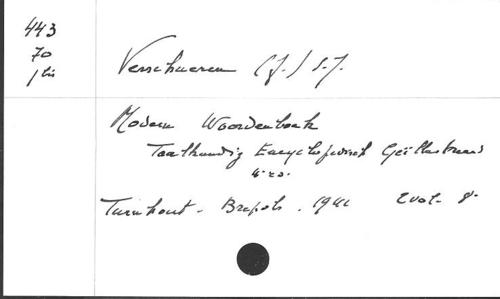 443
70
/bis
Verschueren (J.) S.J.
Modern Woordenboek
Taalkundig Encyclopedisch Geïllustreerd
4e
Turnhout - Brepols . 2 vol. 8°